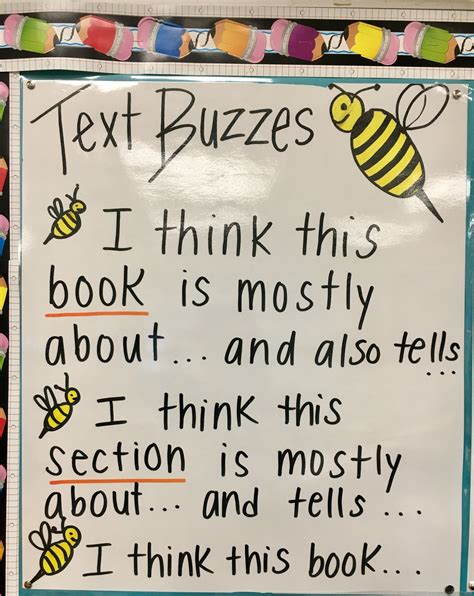 Text Buzzes
I think this
book is mostly
about... and also tells
...
I think this
section is mostly
about... and tells ...
I think this book...